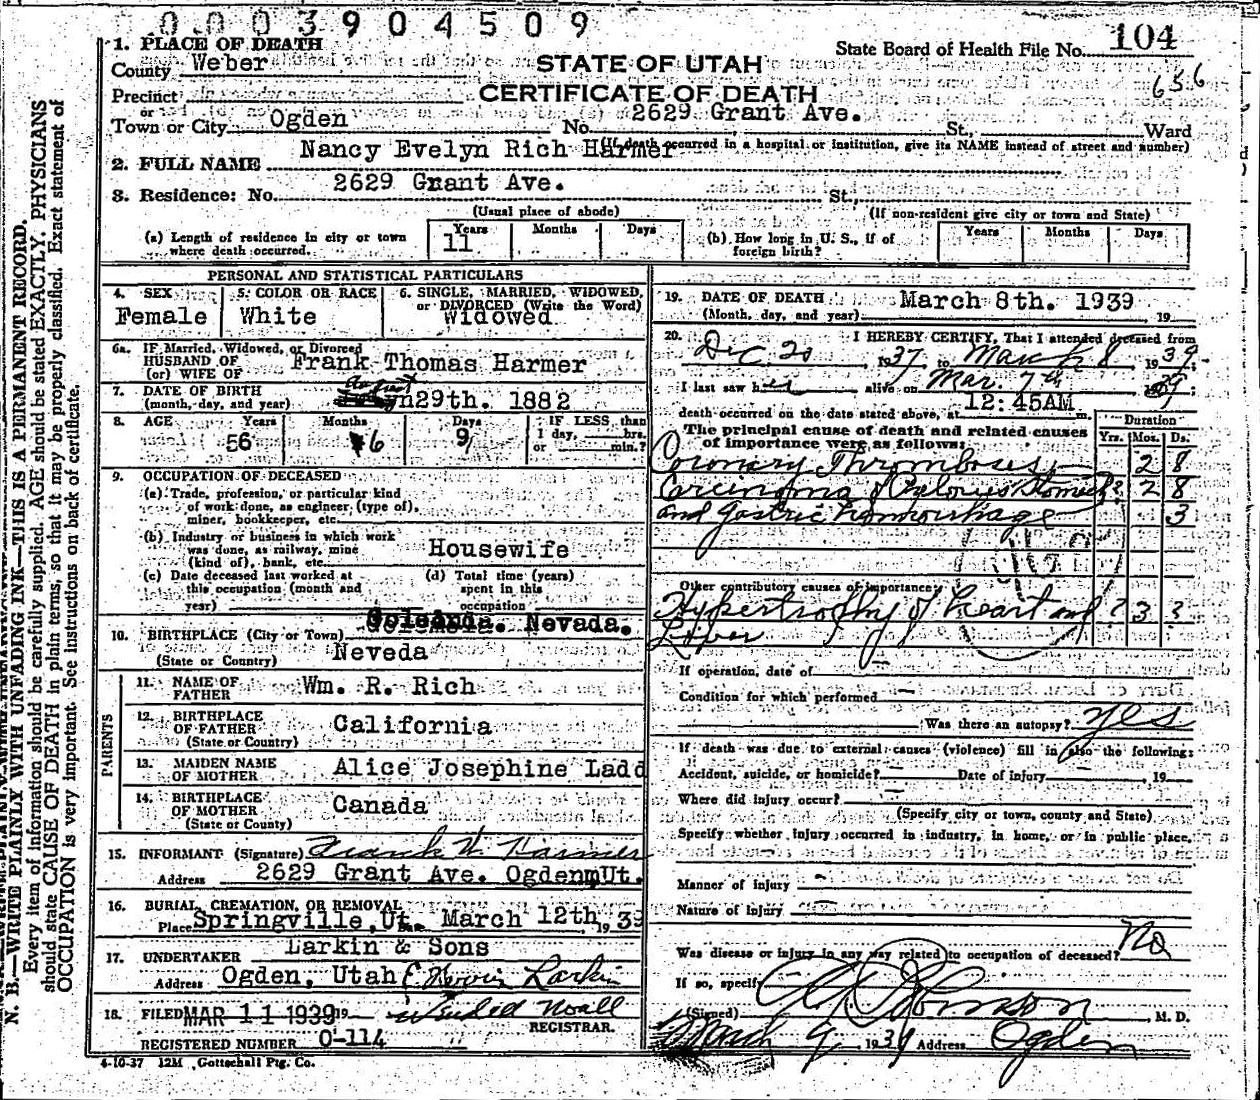 0003904509
1. PLACE OF DEATH
State Board of Health File No. 104
656
County Weber
STATE OF UTAH
Precinct
CERTIFICATE OF DEATH
or
Town or City Ogden No. 2629 Grant Ave. St., Ward
(If death occurred in a hospital or institution, give its NAME instead of street and number)
2. FULL NAME Nancy Evelyn Rich Harmer
3. Residence: No. 2629 Grant Ave. St.,
(Usual place of abode) (If non-resident give city or town and State)
(a) Length of residence in city or town where death occurred. Years 11 Months Days
(b) How long in U. S., if of foreign birth? Years Months Days
PERSONAL AND STATISTICAL PARTICULARS
4. SEX Female
5. COLOR OR RACE White
6. SINGLE, MARRIED, WIDOWED, or DIVORCED (Write the Word) Widowed
6a. IF Married, Widowed, or Divorced
HUSBAND OF
(or) WIFE OF Frank Thomas Harmer
7. DATE OF BIRTH
(month, day, and year) August 29th. 1882
8. AGE Years 56 Months 6 Days 9 IF LESS than 1 day, hrs. or min.?
9. OCCUPATION OF DECEASED
(a) Trade, profession, or particular kind
of work done, as engineer, (type of),
miner, bookkeeper, etc.
(b) Industry or business in which work
was done, as railway, mine
(kind of), bank, etc. Housewife
(c) Date deceased last worked at
this occupation (month and
year)
(d) Total time (years)
spent in this
occupation
10. BIRTHPLACE (City or Town) Nevada.
(State or Country) Neveda
PARENTS
11. NAME OF FATHER Wm. R. Rich
12. BIRTHPLACE OF FATHER California
(State or Country)
13. MAIDEN NAME OF MOTHER Alice Josephine Ladd
14. BIRTHPLACE OF MOTHER Canada
(State or Country)
15. INFORMANT (Signature) Frank W. Harmer
Address 2629 Grant Ave. OgdenmUt.
16. BURIAL, CREMATION, OR REMOVAL
Place Springville, Ut. March 12th, 1939
17. UNDERTAKER Larkin & Sons
Address Ogden, Utah Larkin
18. FILED MAR 11 1939 19 Noall
REGISTRAR.
REGISTERED NUMBER 0-114
4-10-37 12M Gottschall Ptg. Co.
19. DATE OF DEATH March 8th. 1939
(Month, day, and year) 19
20. I HEREBY CERTIFY, That I attended deceased from
Dec 20 1937, to March 8 1939;
I last saw her alive on Mar. 7th 1939;
death occurred on the date stated above, at 12:45AM m.
The principal cause of death and related causes
of importance were as follows:
Duration
Yrs. Mos. Ds.
Coronary Thrombosis 2 8
Carcinoma of Pylorus Stomach ? 2 8
and Gastric hemorrhage 3
Other contributory causes of importance:
Hypertrophy of heart and ? 3 ?
Liver
If operation, date of
Condition for which performed
Was there an autopsy? yes
If death was due to external causes (violence) fill in also the following:
Accident, suicide, or homicide? Date of injury , 19
Where did injury occur?
(Specify city or town, county and State)
Specify whether injury occurred in industry, in home, or in public place.
Manner of injury
Nature of injury
Was disease or injury in any way related to occupation of deceased? No
If so, specify
(Signed) Johnson, M. D.
March 9, 1939 Address Ogden
N. B.—WRITE PLAINLY WITH UNFADING INK—THIS IS A PERMANENT RECORD.
Every item of information should be carefully supplied. AGE should be stated EXACTLY. PHYSICIANS
should state CAUSE OF DEATH in plain terms, so that it may be properly classified. Exact statement of
OCCUPATION is very important. See instructions on back of certificate.